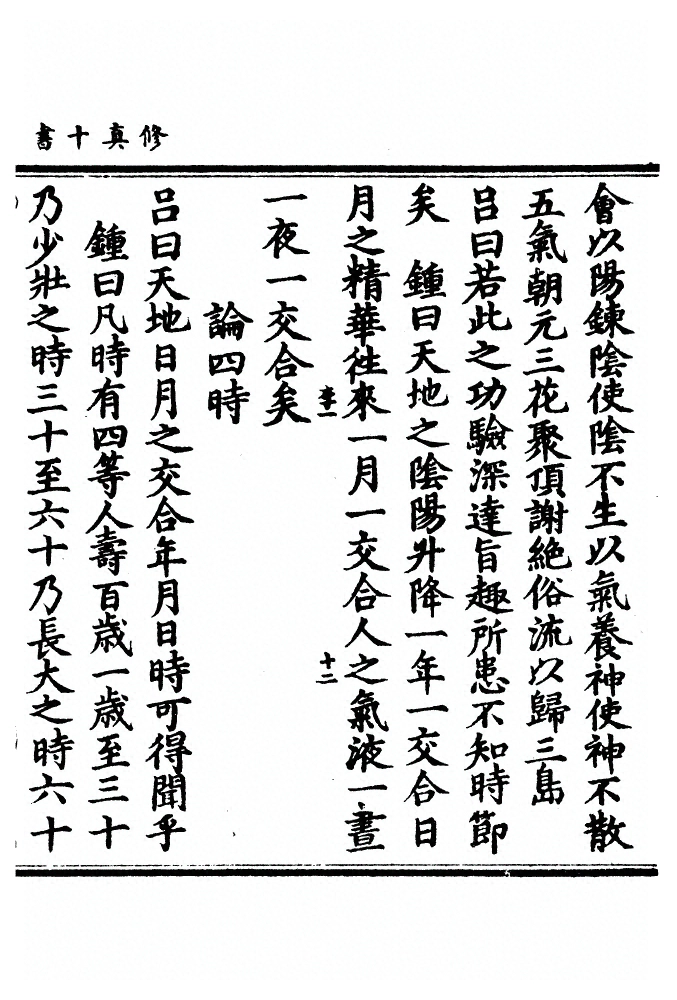 修真十書
會以陽鍊陰使陰不生以氣養神使神不散
五氣朝元三花聚頂謝絶俗流以歸三島
呂曰若此之功驗深達旨趣所患不知時節
矣　鍾曰天地之陰陽升降一年一交合日
月之精華徃來一月一交合人之氣液一晝
李一
十二
一夜一交合矣
論四時
呂曰天地日月之交合年月日時可得聞乎
鍾曰凡時有四等人壽百歲一歲至三十
乃少壯之時三十至六十乃長大之時六十